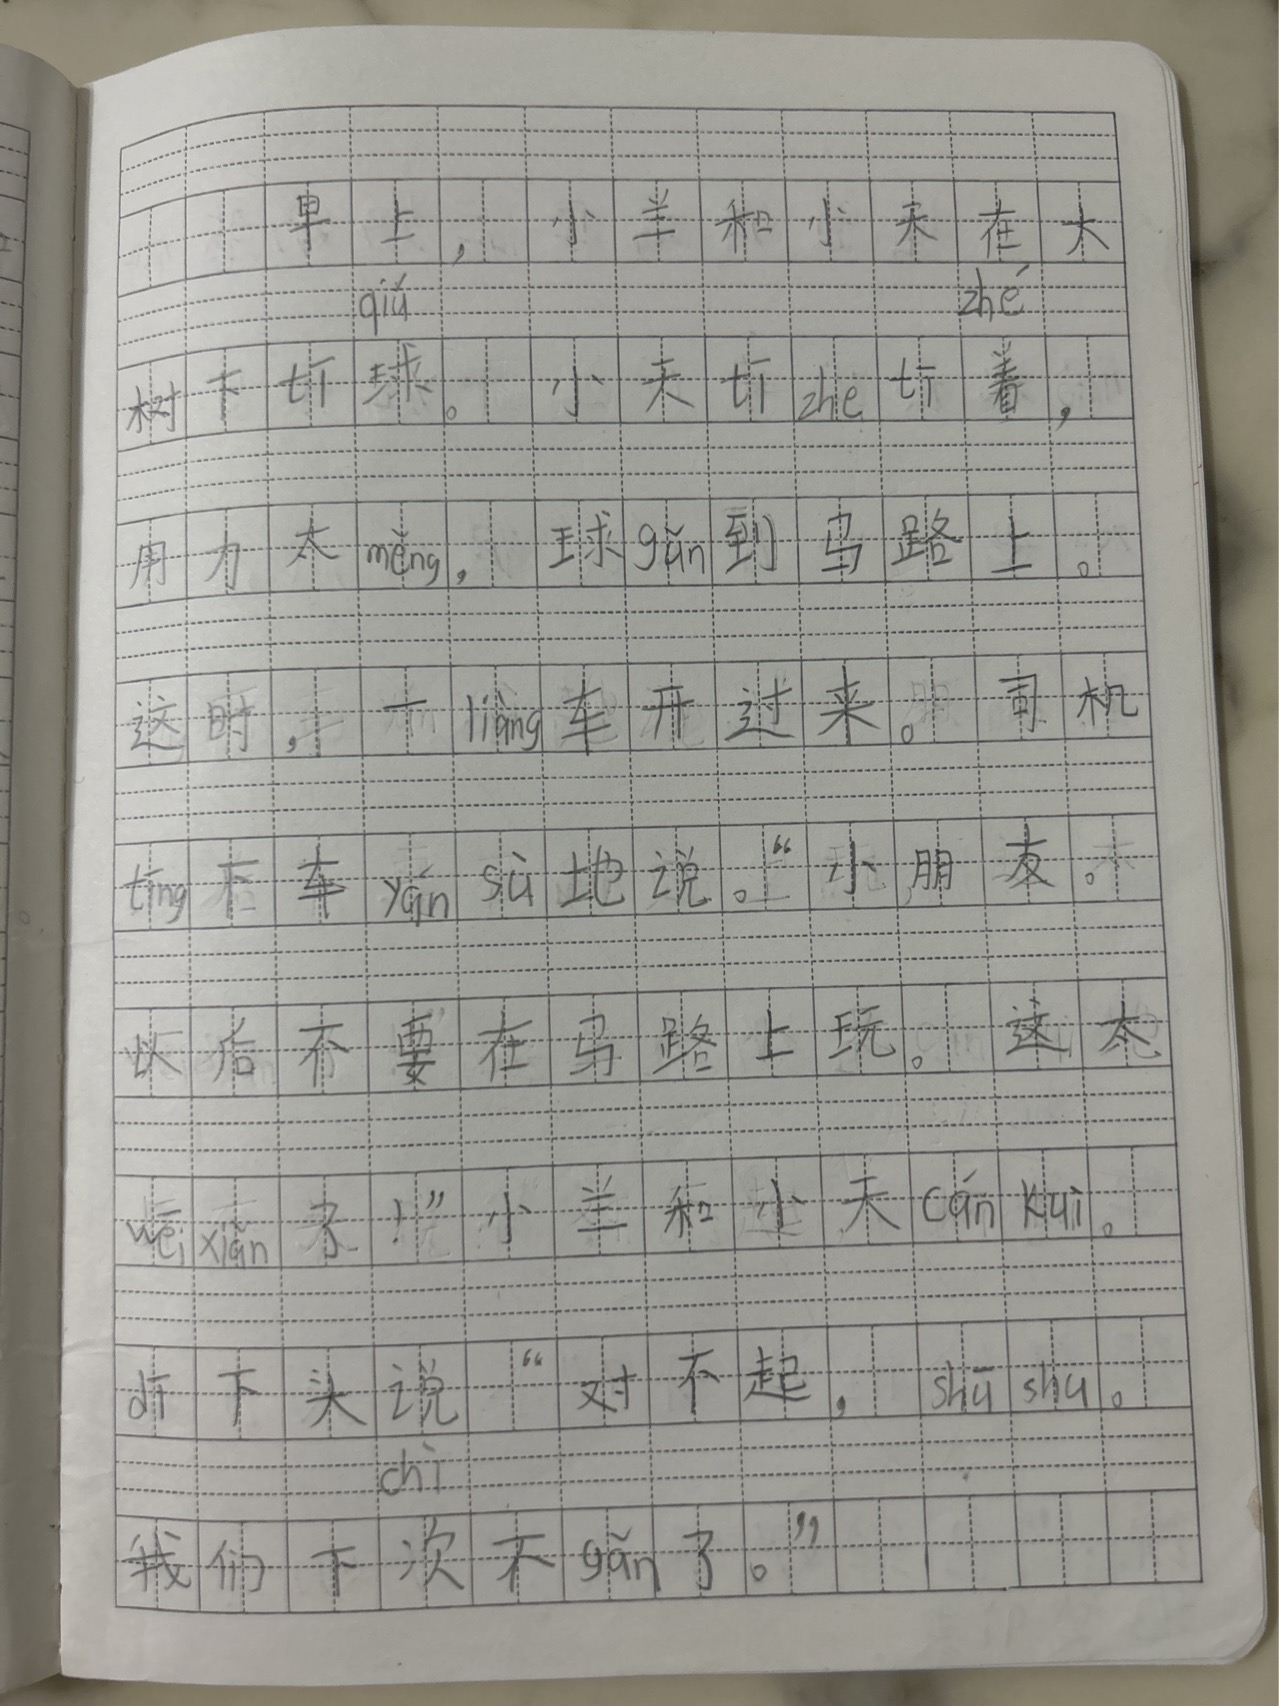 早上，小羊和小天在大
qiú zhé
树下tī球。小天tīzhetī着，
用力太měng，球gǔn到马路上。
这时，一liàng车开过来。司机
tíng下车yán sù地说。“小朋友。
以后不要在马路上玩。这太
wēi xiǎn了！”小羊和小天cán kuì。
dī下头说“对不起，shū shu。
chì
我们下次不gǎn了。”